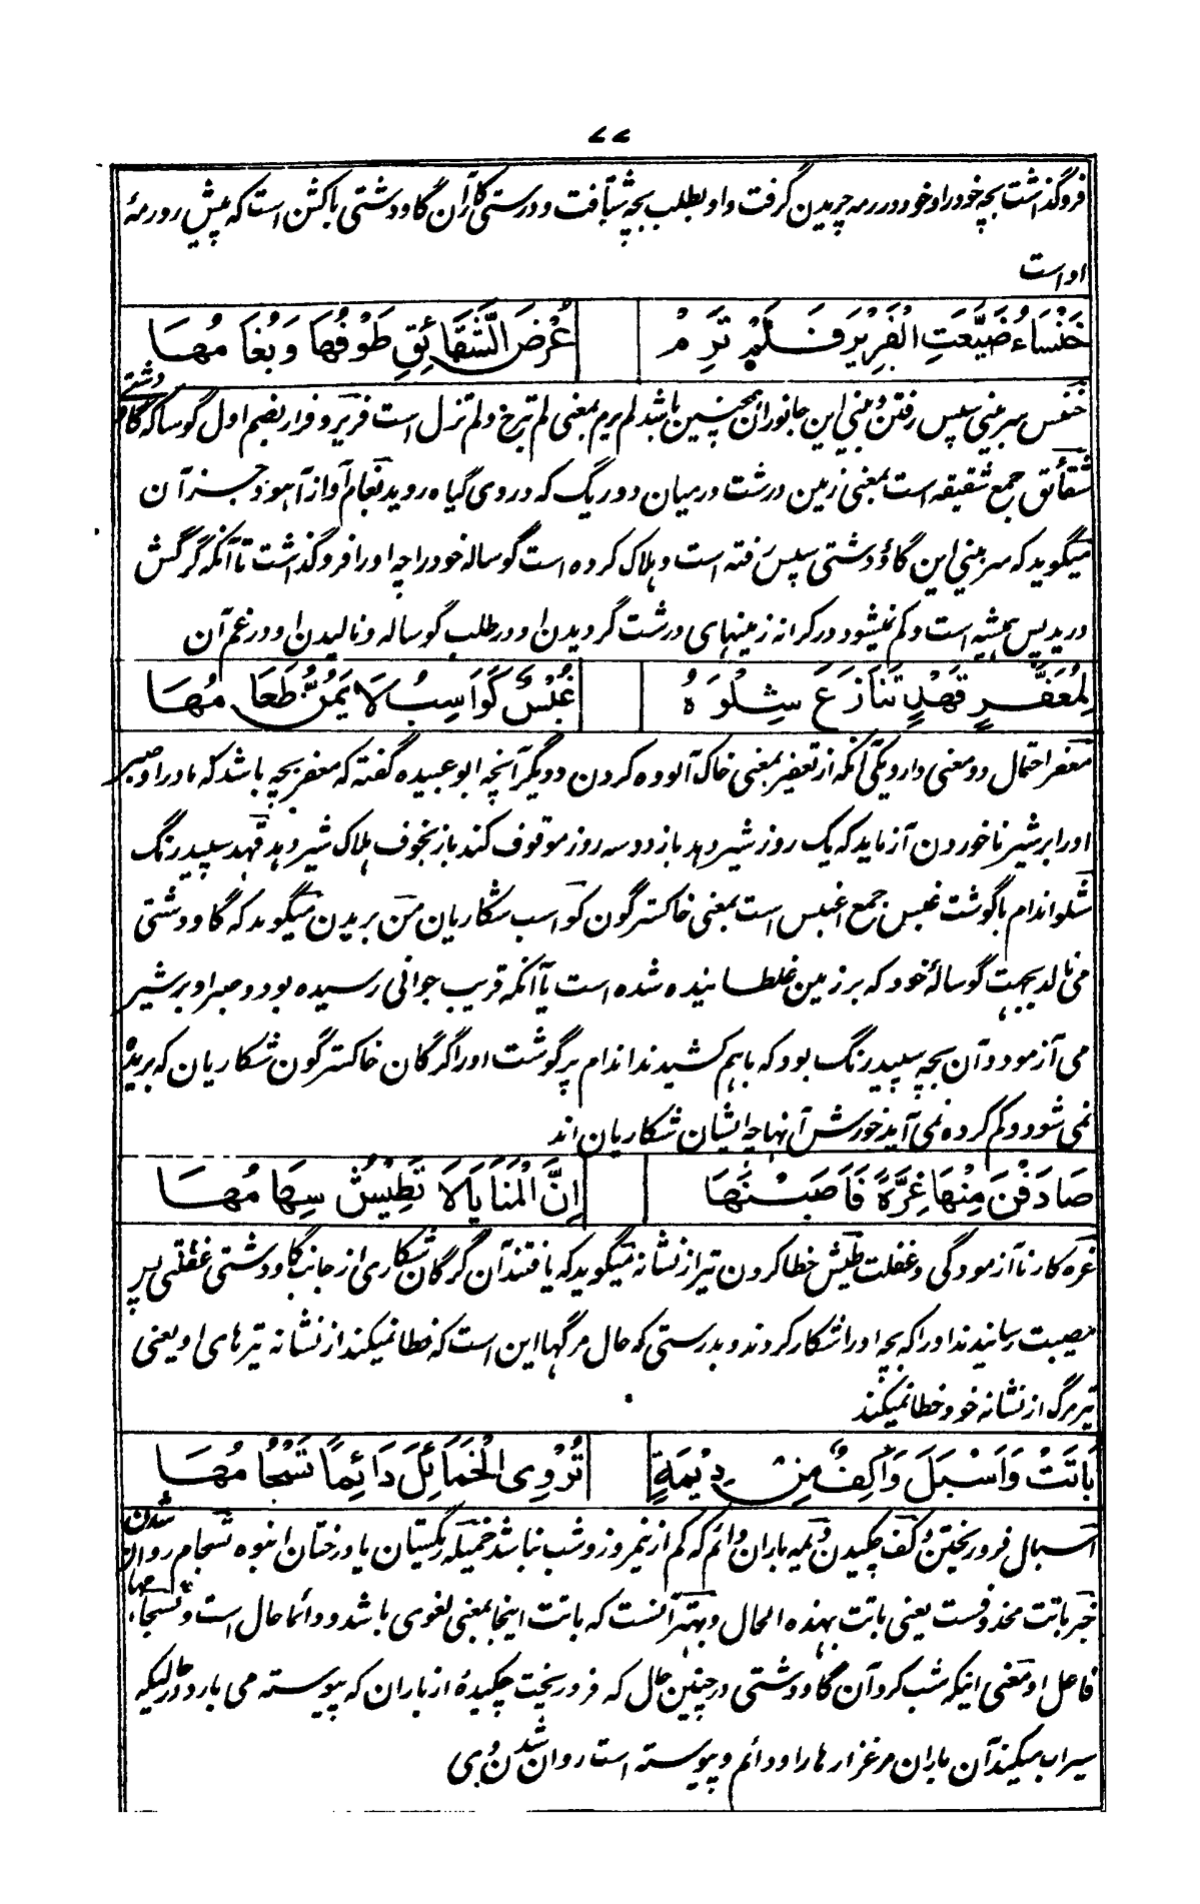 ۷۷
فروگذاشت بچه خود را و خود در رمه چریدن گرفت و او بطلب بچه شتافت و درستی کار آن گاو دشتی باکشن است که پیش رو رمهٔ
او است
خَنْسَاءُ ضَيَّعَتِ الْفَرِيْرَ فَلَمْ تَرِمْ عُرْضَ الشَّقَائِقِ طَوْفُهَا وَبُغَامُهَا
خنس سر بینی سپس رفتن و بینی این جانوران همچنین باشد لم یرم بمعنی لم تبرح و لم تزل است فریر و فرار بضم اول گوساله گاو دشتی
شقائق جمع شقیقه است بمعنی زمین درشت درمیان دو ریگ که در وی گیاه روید بغام آواز آهو و جز آن
میگوید که سر بینی این گاؤ دشتی سپس رفته است و هلاک کرده است گوساله خود را چه او را فروگذاشت تا آنکه گرگش
درید پس همیشه است و کم نمیشود در کرانه زمینهای درشت گردیدن او در طلب گوساله و نالیدن او در غم آن
لِمُعَفَّرٍ قَهْدٍ تَنَازَعَ شِلْوَهُ غُبْسٌ كَوَاسِبُ لَا يَمُنُّ طَعَامُهَا
معفر احتمال دو معنی دارد یکی آنکه از تعفیر بمعنی خاک آلوده کردن دویگر آنچه ابو عبیده گفته که معفر بچه باشد که مادر او صبر
او را بر شیر ناخوردن آزماید که یک روز شیر دهد باز دو سه روز موقوف کند باز بخوف هلاک شیر دهد قهد سپید رنگ
شلو اندام باگوشت غبس جمع اغبس است بمعنی خاکسترگون کواسب شکاریان من بریدن میگوید که گاو دشتی
می نالد بجهت گوسالهٔ خود که بر زمین غلطانیده شده است یا آنکه قریب جوانی رسیده بود و صبر او بر شیر
می آزمود و آن بچه سپید رنگ بود که باهم کشیدند اندام پر گوشت او را گرگان خاکسترگون شکاریان که بریده
نمی شود و کم کرده نمی آید خورش آنها چه ایشان شکاریان اند
صَادَفْنَ مِنْهَا غِرَّةً فَأَصَبْنَهَا إِنَّ الْمَنَايَا لَا تَطِيْشُ سِهَامُهَا
غره کار ناآزمودگی و غفلت طیش خطا کردن تیر از نشانه میگوید که یافتند آن گرگان شکاری از جانب گاو دشتی غفلتی پس
مصیبت رسانیدند او را که بچه او را شکار کردند و بدرستی که حال مرگها این است که خطا نمیکند از نشانه تیرهای او یعنی
تیر مرگ از نشانه خود خطا نمیکند
بَاتَتْ وَأَسْبَلَ وَاكِفٌ مِنْ دِيْمَةٍ تُرْوِى الْخَمَائِلَ دَائِمًا تَسْجَامُهَا
اسبال فرو ریختن وکف چکیدن دیمه باران دائم که کم از نیمروز و شب نباشد خمیله ریگستان یا درختان انبوه تسجام روان شدن
خبر باتت محذوفست یعنی باتت بهذه الحال و بهتر آنست که باتت اینجا بمعنی لغوی باشد و دائما حال است و تسجامها
فاعل او معنی اینکه شب کرد آن گاو دشتی در چنین حال که فرو ریخت چکیدهٔ از باران که پیوسته می بارد در حالیکه
سیراب میکند آن باران مرغزارها را و دائم و پیوسته است روان شدن وی